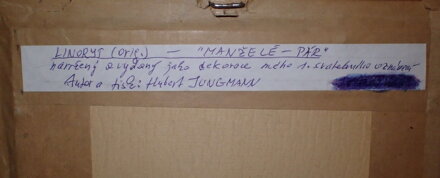 LINORYT (orig.) — "MANŽELÉ – PÁR"
navržený a vydaný jako dekorace mého 1. svatebního oznámení
Autor a tisk: Hubert JUNGMANN